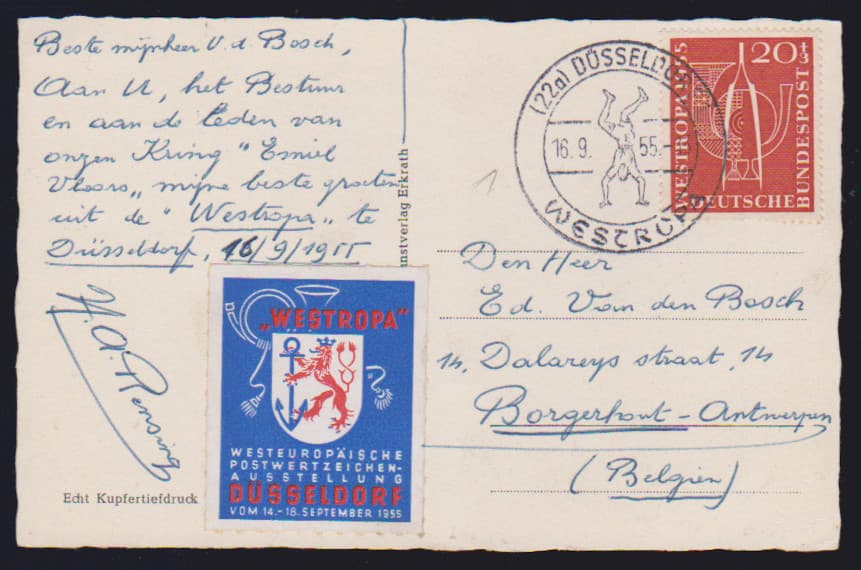 Beste mijnheer V. d. Bosch,
Aan U, het Bestuur
en aan de Leden van
onzen Kring "Emiel
Vloors" mijne beste groeten
uit de "Westropa" te
Düsseldorf, 16/9/1955
H. A. Rensing
Echt Kupfertiefdruck
nstverlag Erkrath
"WESTROPA"
WESTEUROPÄISCHE
POSTWERTZEICHEN-
AUSSTELLUNG
DÜSSELDORF
VOM 14.-18. SEPTEMBER 1955
(22a) DÜSSELDORF
16.9. 55.-
WESTROPA
WESTROPA 1955
20+3
DEUTSCHE
BUNDESPOST
1
Den Heer
Ed. Van den Bosch
14, Dalareys straat, 14
Borgerhout-Antwerpen
(Belgien)